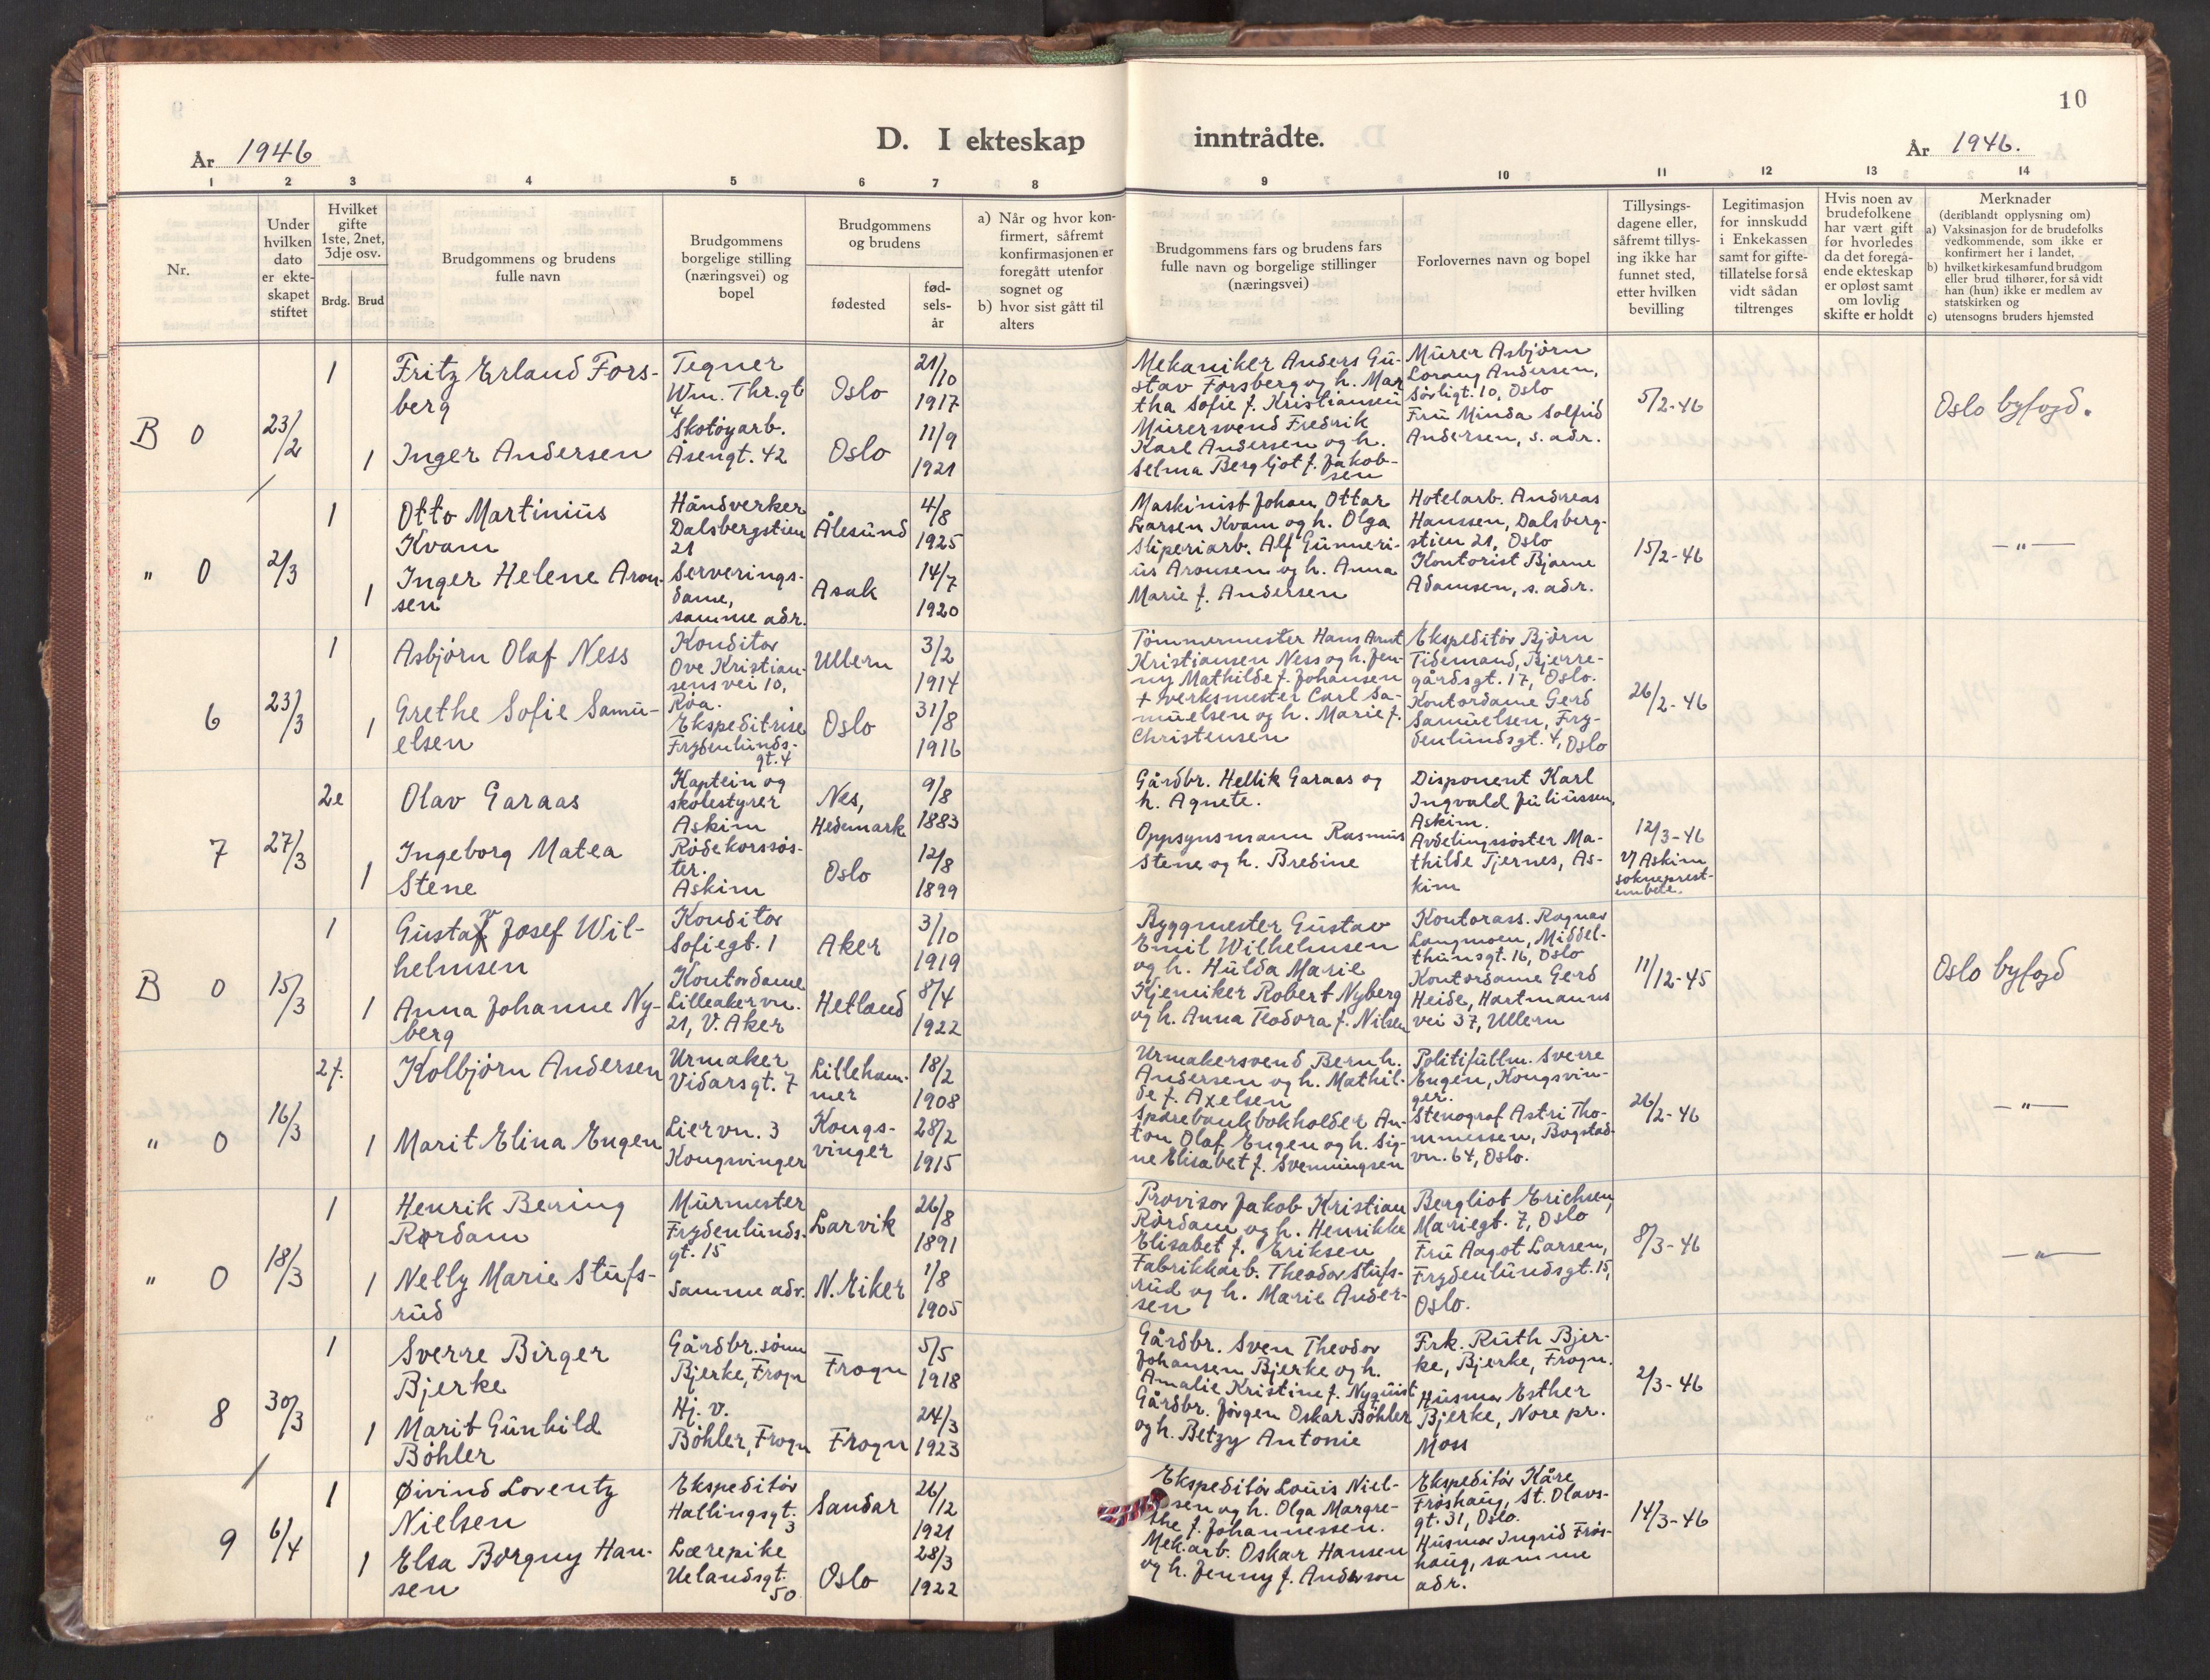 10
D. I ekteskap inntrådte.
År 1946
År 1946.
1 2 3 4 5 6 7 8 9 10 11 12 13 14
Nr.
Under
hvilken
dato
er ekte-
skapet
stiftet
Hvilket
gifte
1ste, 2net,
3dje osv.
Brdg. Brud
Brudgommens og brudens
fulle navn
Brudgommens
borgelige stilling
(næringsvei) og
bopel
Brudgommens
og brudens
fødested
fød-
sels-
år
a) Når og hvor kon-
firmert, såfremt
konfirmasjonen er
foregått utenfor
sognet og
b) hvor sist gått til
alters
Brudgommens fars og brudens fars
fulle navn og borgelige stillinger
(næringsvei)
Forlovernes navn og bopel
Tillysings-
dagene eller,
såfremt tillys-
ing ikke har
funnet sted,
etter hvilken
bevilling
Legitimasjon
for innskudd
i Enkekassen
samt for gifte-
tillatelse for så
vidt sådan
tiltrenges
Hvis noen av
brudefolkene
har vært gift
før hvorledes
da det foregå-
ende ekteskap
er opløst samt
om lovlig
skifte er holdt
Merknader
(deriblandt opplysning om)
a) Vaksinasjon for de brudefolks
vedkommende, som ikke er
konfirmert her i landet,
b) hvilket kirkesamfund brudgom
eller brud tilhører, for så vidt
han (hun) ikke er medlem av
statskirken og
c) utensogns bruders hjemsted
B 0
23/2
1
Fritz Erland Fors-
berg
Tegner
Wm. Thr.gt
4
Oslo
21/10
1917
1
Inger Andersen
Skotøyarb.
Åsengt. 42
Oslo
11/9
1921
Mekaniker Anders Gu-
stav Forsberg og h. Mar
tha Sofie f. Kristiansen
Murersvend Fredrik
Karl Andersen og h.
Selma Bergljot f. Jakob-
sen
Murer Asbjørn
Lorang Andersen,
Sørligt. 10, Oslo
Fru Minda Solfrid
Andersen, s. adr.
5/2-46
Oslo byfogd.
" 0
2/3
1
Otto Martinius
Kvam
Håndverker
Dalsbergstien
21
Ålesund
4/8
1925
1
Inger Helene Aron-
sen
Serverings-
dame,
samme adr.
Asak
14/7
1920
Maskinist Johan Ottar
Larsen Kvam og h. Olga
Sliperiarb. Alf Gunneri-
us Aronsen og h. Anna
Marie f. Andersen
Hotelarb. Andreas
Hanssen, Dalsberg-
stien 21, Oslo
Kontorist Bjarne
Adamsen, s. adr.
15/2-46
— " —
6
23/3
1
Asbjørn Olaf Ness
Konditor
Ove Kristian-
sens vei 10,
Røa.
Ullern
3/2
1914
1
Grethe Sofie Samu-
elsen
Ekspeditrise
Frydenlunds-
gt. 4
Oslo
31/8
1916
Tømmermester Hans Arnt
Kristiansen Ness og h. Jen-
ny Mathilde f. Johansen
+ Verksmester Carl Sa-
muelsen og h. Marie f.
Christensen
Ekspeditør Bjørn
Tidemand, Bjerre-
gårdsgt. 17, Oslo.
Kontordame Gerd
Samuelsen, Fry-
denlundsgt. 4, Oslo
26/2-46
7
27/3
2e
Olav Garaas
Kaptein og
skolestyrer
Askim
Nes,
Hedemark
9/8
1883
1
Ingeborg Matea
Stene
Rødekorssøs-
ter.
Askim
Oslo
12/8
1899
Gårdbr. Hellik Garaas og
h. Agnete.
Oppsynsmann Rasmus
Stene og h. Bredine
Disponent Karl
Ingvald Juliussen,
Askim.
Avdelingssøster Ma-
thilde Tjernes, As-
kim
12/3-46
v/ Askim
sokneprest-
embete.
B 0
15/3
1
Gustav Josef Wil-
helmsen
Konditor
Sofiegt. 1
Aker
3/10
1919
1
Anna Johanne Ny-
berg
Kontordame
Lilleakervn.
21, V. Aker
Hetland
8/4
1922
Byggmester Gustav
Emil Wilhelmsen
og h. Hulda Marie
Kjemiker Robert Nyberg
og h. Anna Teodora f. Nilsen
Kontorass. Ragnar
Langmoen, Middel-
thunsgt. 16, Oslo
Kontordame Gerd
Heide, Hartmanns
vei 37, Ullern
11/12-45
Oslo byfogd
" 0
16/3
2f.
Kolbjørn Andersen
Urmaker
Vidarsgt. 7
Lilleham-
mer
18/2
1908
1
Marit Elina Engen
Liervn. 3
Kongsvinger
Kongs-
vinger
28/2
1915
Urmakersvend Bernh.
Andersen og h. Mathil-
de f. Axelsen
Sparebankbokholder An-
ton Olaf Engen og h. Sig-
ne Elisabet f. Svenningsen
Politifullm. Sverre
Engen, Kongsvin-
ger.
Stenograf Astri Tho-
mmessen, Bogstad-
vn. 64, Oslo.
26/2-46
— " —
" 0
18/3
1
Henrik Bering
Rørdam
Murmester
Frydenlunds-
gt. 15
Larvik
26/8
1891
1
Nelly Marie Stufs-
rud
Samme adr.
N. Eiker
1/8
1905
Provisor Jakob Kristian
Rørdam og h. Henrikke
Elisabet f. Eriksen
Fabrikkarb. Theodor Stufs-
rud og h. Marie Ander-
sen
Bergliot Erichsen,
Mariegt. 7, Oslo
Fru Aagot Larsen,
Frydenlundsgt. 15,
Oslo.
8/3-46
— " —
8
30/3
1
Sverre Birger
Bjerke
Gårdbr. sønn
Bjerke, Frogn
Frogn
5/5
1918
1
Marit Gunhild
Bøhler
Hj. v.
Bøhler, Frogn
Frogn
24/3
1923
Gårdbr. Sven Theodor
Johansen Bjerke og h.
Amalie Kristine f. Nyquist
Gårdbr. Jørgen Oskar Bøhler
og h. Betzy Antonie
Frk. Ruth Bjer-
ke, Bjerke, Frogn.
Husmor Esther
Bjerke, Nore pr.
Moss
2/3-46
9
6/4
1
Øivind Lorentz
Nielsen
Ekspeditør
Hallingsgt.
3
Sandar
26/12
1921
1
Elsa Borgny Han-
sen
Lærepike
Uelandsgt.
50
Oslo
28/3
1922
Ekspeditør Louis Niel-
sen og h. Olga Margre-
the f. Johannessen.
Mek.arb. Oskar Hansen
og h. Jenny f. Anderson
Ekspeditør Kåre
Frøshaug, St. Olavs-
gt. 31, Oslo.
Husmor Ingrid Frøs-
haug, samme
adr.
14/3-46